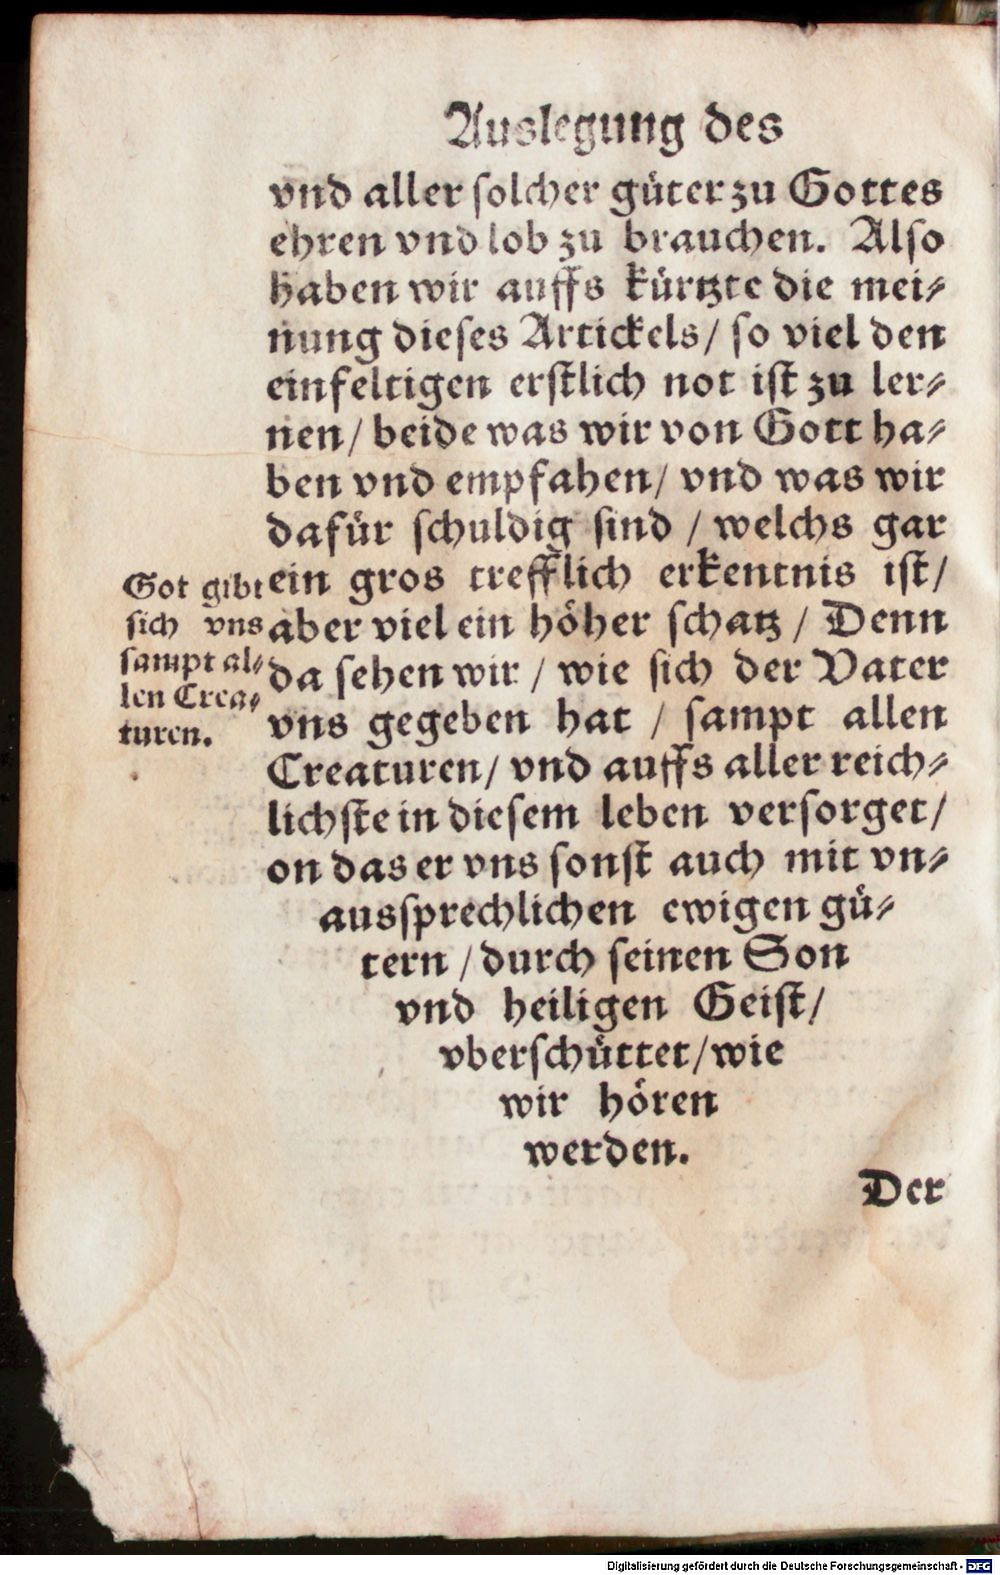 Auslegung des
vnd aller ſolcher güter zu Gottes
ehren vnd lob zu brauchen. Alſo
haben wir auffs kürtzte die mei⸗
nung dieſes Artickels / ſo viel den
einfeltigen erſtlich not iſt zu ler⸗
nen / beide was wir von Gott ha⸗
ben vnd empfahen / vnd was wir
dafür ſchuldig ſind / welchs gar
ein gros trefflich erkentnis iſt /
aber viel ein höher ſchatz / Denn
da ſehen wir / wie ſich der Vater
vns gegeben hat / ſampt allen
Creaturen / vnd auffs aller reich⸗
lichſte in dieſem leben verſorget /
on das er vns ſonſt auch mit vn⸗
ausſprechlichen ewigen gü⸗
tern / durch ſeinen Son
vnd heiligen Geiſt /
vberſchüttet / wie
wir hören
werden.
Der
Got gibt
ſich vns
ſampt al⸗
len Crea⸗
turen.
Digitalisierung gefördert durch die Deutsche Forschungsgemeinschaft - DFG